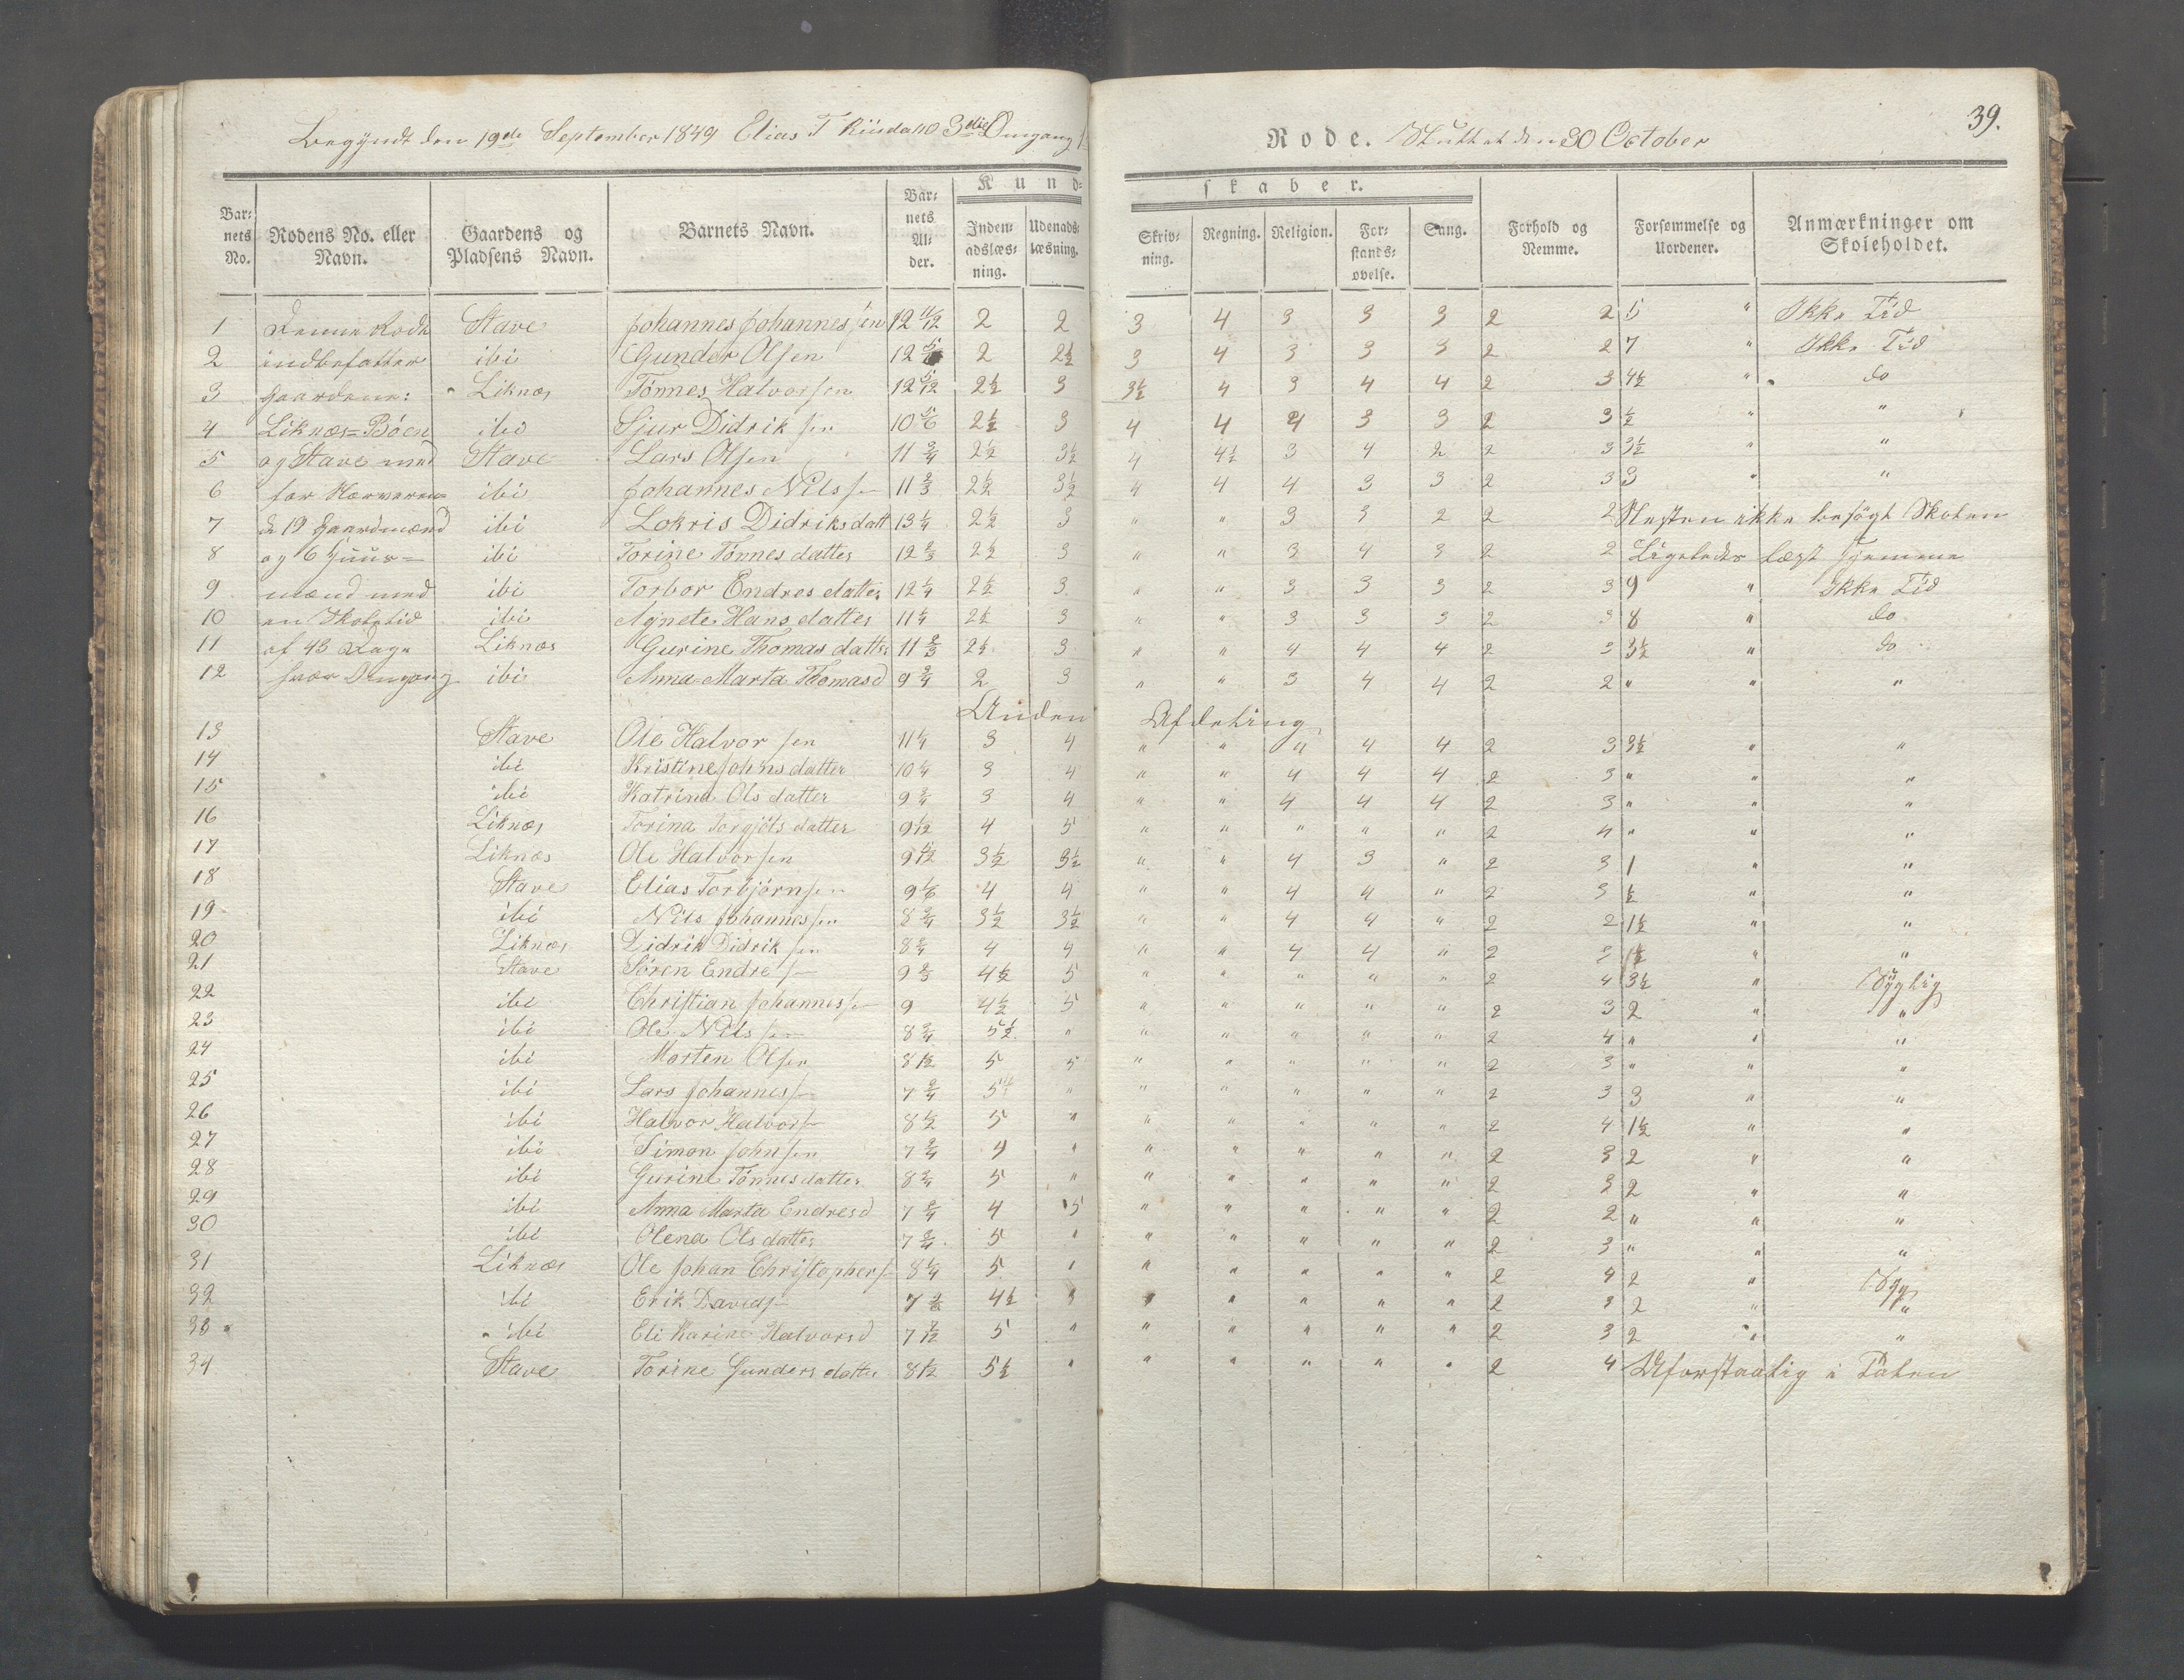 39.
Begyndt den 19de September 1849 Elias T 3die Omgang
Rode. Sluttet den 30 October
Kund- skaber.
Barnets No. Rodens No. eller Navn. Gaardens og Pladsens Navn. Barnets Navn. Barnets Alder. Indenadslæsning. Udenadslæsning. Skrivning. Regning. Religion. Forstandsøvelse. Sang. Forhold og Nemme. Forsømmelse og Uordener. Anmærkninger om Skoleholdet.
1 Denne Rode Stave Johannes Johannessen 12 11/12 2 2 3 4 3 3 3 2 2 5 " Ikke Tid
2 indbefatter ibi Gunder Olsen 12 2 2½ 3 4 3 3 3 2 2 7 " Ikke Tid
3 Gaardene: Liknæs Tønnes Halvorsen 12 5/12 2½ 3 3½ 4 3 4 4 2 3 4½ " do
4 Liknæs=Bøen ibi Sjur Didriksen 10 5/6 2½ 3 4 4 4 3 3 2 3 ½ " "
5 og Stave med Stave Lars Olsen 11 3/4 2½ 3½ 4 4½ 3 4 2 2 3 3½ " "
6 ibi Johannes Nilssen 11 2/3 2½ 3½ 4 4 4 3 3 2 3 3 " "
7 de 19 Gaardmænd ibi Lokris Didriksdatt 13 1/4 2½ 3 " " 3 3 2 2 2 Næsten ikke besøgt Skolen
8 og 6 Huus= ibi Torine Tønnesdatter 12 2/3 2½ 3 " " 3 4 3 2 2 Ligeledes læst hjemme
9 mænd med ibi Torbor Endresdatter 12 1/4 2½ 3 " " 3 3 3 2 3 9 " Ikke Tid
10 en Skoletid ibi Agnete Hansdatter 11 1/4 2½ 3 " " 3 3 3 2 3 8 " do
11 af 43 Dage Liknæs Gurine Thomasdatter 11 2/3 2½ 3 " " 4 4 4 2 3 3½ " do
12 hver Omgang ibi Anna Marta Thomasd 9 3/4 2 3 " " 3 4 4 2 2 " " "
Anden Afdeling
13 Stave Ole Halvorsen 11 1/4 3 4 " " " 4 4 2 3 3½ " "
14 ibi Kristine Johnsdatter 10 1/4 3 4 " " 4 4 4 2 3 " " "
15 ibi Katrina Olsdatter 9 3/4 3 4 " " 4 4 4 2 3 " " "
16 Liknæs Torina Torgjelsdatter 9 1/12 4 5 " " " " " 2 4 " " "
17 Liknæs Ole Halvorsen 9 3½ 3½ " " 4 3 " 2 3 1 " "
18 Stave Elias Torbjørnsen 9 1/6 4 4 " " 4 4 " 2 3 ½ " "
19 ibi Nils Johannessen 8 3/4 3½ 3½ " " 4 4 " 2 2 1½ " "
20 Liknæs Didrik Didriksen 8 3/4 4 4 " " 4 4 " 2 3 1½ " "
21 Stave Søren Endres 9 2/3 4½ 5 " " " " " 2 4 3½ " Sygelig
22 ibi Christian Johannes 9 4½ 5 " " " " " 2 3 2 " "
23 ibi Ole Nils 8 3/4 5½ " " " " " " 2 4 " " "
24 ibi Morten Olsen 8 1/12 5 5 " " " " " 2 3 " " "
25 ibi Lars Johannes 7 3/4 5 " " " " " " 2 3 3 " "
26 ibi Halvor Halvors 8 1/2 5 " " " " " " 2 4 1½ " "
27 ibi Simon Johnsen 7 3/4 4 " " " " " " 2 3 2 " "
28 ibi Gurine Tønnesdatter 8 3/4 5 " " " " " " 2 3 2 " "
29 ibi Anna Marta Endresd 7 3/4 4 5 " " " " " 2 2 " " "
30 ibi Olena Olsdatter 7 3/4 5 " " " " " " 2 3 " " "
31 Liknæs Ole Johan Christophers 8 1/4 5 " " " " " " 2 4 2 " Syg
32 ibi Erik Davids 7 4½ " " " " " 2 3 2 " "
33 ibi Eli Karine Halvorsd 7 7/12 5 " " " " " " 2 3 2 " "
34 Stave Torine Gundersdatter 8 1/12 5½ " " " " " " 2 4 Uforstaalig i Talen